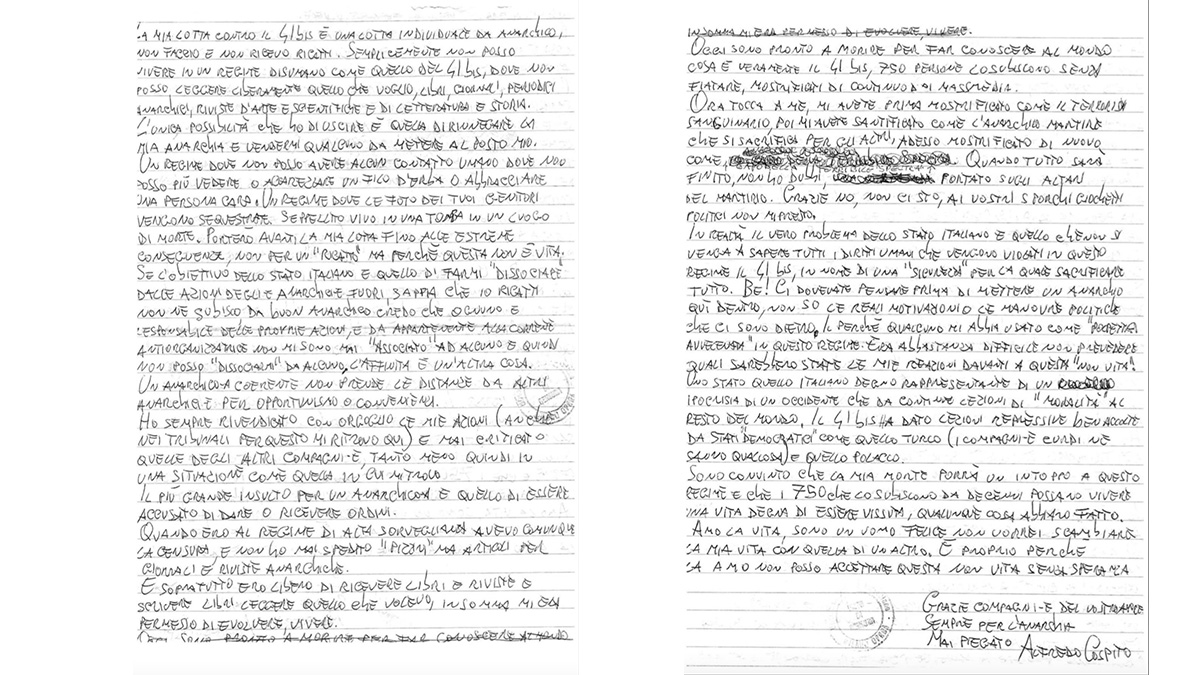 LA MIA LOTTA CONTRO IL 41 BIS È UNA LOTTA INDIVIDUALE DA ANARCHICO,
NON FACCIO E NON RICEVO RICATTI. SEMPLICEMENTE NON POSSO
VIVERE IN UN REGIME DISUMANO COME QUELLO DEL 41 BIS, DOVE NON
POSSO LEGGERE LIBERAMENTE QUELLO CHE VOGLIO, LIBRI, GIORNALI, PERIODICI
ANARCHICI, RIVISTE D'ARTE E SCENTIFICHE E DI LETTERATURA E STORIA.
L'UNICA POSSIBILITÀ CHE HO DI USCIRE È QUELLA DI RINNEGARE LA
MIA ANARCHIA E VENDERMI QUALCUNO DA METTERE AL POSTO MIO.
UN REGIME DOVE NON POSSO AVERE ALCUN CONTATTO UMANO DOVE NON
POSSO PIÙ VEDERE O ACCAREZZARE UN FILO D'ERBA O ABBRACCIARE
UNA PERSONA CARA. UN REGIME DOVE LE FOTO DEI TUOI GENITORI
VENGONO SEQUESTRATE. SEPPELLITO VIVO IN UNA TOMBA IN UN LUOGO
DI MORTE. PORTERÒ AVANTI LA MIA LOTTA FINO ALLE ESTREME
CONSEGUENZE, NON PER UN "RICATTO" MA PERCHÈ QUESTA NON È VITA.
SE L'OBIETTIVO DELLO STATO ITALIANO È QUELLO DI FARMI "DISSOCIARE"
DALLE AZIONI DEGLI-E ANARCHICI-E FUORI, SAPPIA CHE IO RICATTI
NON NE SUBISCO DA BUON ANARCHICO CREDO CHE OGNUNO È
RESPONSABILE DELLE PROPRIE AZIONI, E DA APPARTENENTE ALLA CORRENTE
ANTIORGANIZZATRICE NON MI SONO MAI "ASSOCIATO" AD ALCUNO E QUINDI
NON POSSO "DISSOCIARMI" DA ALCUNO, L'AFFINITÀ È UN'ALTRA COSA.
UN ANARCHICO-A COERENTE NON PRENDE LE DISTANZE DA ALTRI
ANARCHICI-E PER OPPORTUNISMO O CONVENIENZA.
HO SEMPRE RIVENDICATO CON ORGOGLIO LE MIE AZIONI (ANCHE
NEI TRIBUNALI PER QUESTO MI RITROVO QUI) E MAI CRITICATO
QUELLE DEGLI ALTRI COMPAGNI-E, TANTO MENO QUINDI IN
UNA SITUAZIONE COME QUELLA IN CUI MI TROVO
IL PIÙ GRANDE INSULTO PER UN ANARCHICO-A È QUELLO DI ESSERE
ACCUSATO DI DARE O RICEVERE ORDINI.
QUANDO ERO AL REGIME DI ALTA SORVEGLIANZA AVEVO COMUNQUE
LA CENSURA, E NON HO MAI SPEDITO "PIZZINI" MA ARTICOLI PER
GIORNALI E RIVISTE ANARCHICHE.
E SOPRATUTTO ERO LIBERO DI RICEVERE LIBRI E RIVISTE E
SCRIVERE LIBRI LEGGERE QUELLO CHE VOLEVO, INSOMMA MI ERA
PERMESSO DI EVOLVERE, VIVERE.
OGGI SONO PRONTO A MORIRE PER FAR CONOSCERE AL MONDO
INSOMMA MI ERA PERMESSO DI EVOLVERE, VIVERE.
OGGI SONO PRONTO A MORIRE PER FAR CONOSCERE AL MONDO
COSA È VERAMENTE IL 41 BIS, 750 PERSONE LO SUBISCONO SENZA
FIATARE, MOSTRIFICATI DI CONTINUO DAI MASSMEDIA.
ORA TOCCA A ME, MI AVETE PRIMA MOSTRIFICATO COME IL TERRORISTA
SANGUINARIO, POI MI AVETE SANTIFICATO COME L'ANARCHICO MARTIRE
CHE SI SACRIFICA PER GLI ALTRI, ADESSO MOSTRIFICATO DI NUOVO
COME, TERRIBILE SPETTRO. QUANDO TUTTO SARÀ
FINITO, NON HO DUBBI, PORTATO SUGLI ALTARI
DEL MARTIRIO. GRAZIE NO, NON CI STO, AI VOSTRI SPORCHI GIOCHETTI
POLITICI NON MI PRESTO.
IN REALTÀ IL VERO PROBLEMA DELLO STATO ITALIANO È QUELLO CHE NON SI
VENGA A SAPERE TUTTI I DIRITTI UMANI CHE VENGONO VIOLATI IN QUESTO
REGIME IL 41 BIS, IN NOME DI UNA "SICUREZZA" PER LA QUALE SACRIFICARE
TUTTO. BE! CI DOVEVATE PENSARE PRIMA DI METTERE UN ANARCHICO
QUÌ DENTRO, NON SO LE REALI MOTIVAZIONI O LE MANOVRE POLITICHE
CHE CI SONO DIETRO. IL PERCHÈ QUALCUNO MI ABBIA USATO COME "POLPETTA
AVVELENATA" IN QUESTO REGIME. ERA ABBASTANZA DIFFICILE NON PREVEDERE
QUALI SAREBBERO STATE LE MIE REAZIONI DAVANTI A QUESTA "NON VITA".
UNO STATO QUELLO ITALIANO DEGNO RAPPRESENTANTE DI UN
IPOCRISIA DI UN OCCIDENTE CHE DA CONTINUE LEZIONI DI "MORALITÀ" AL
RESTO DEL MONDO. IL 41 BIS HA DATO LEZIONI REPRESSIVE BEN ACCOLTE
DA STATI "DEMOCRATICI" COME QUELLO TURCO (I COMPAGNI-E CURDI NE
SANNO QUALCOSA) E QUELLO POLACCO.
SONO CONVINTO CHE LA MIA MORTE PORRÀ UN INTOPPO A QUESTO
REGIME E CHE I 750 CHE LO SUBISCONO DA DECENNI POSSANO VIVERE
UNA VITA DEGNA DI ESSERE VISSUTA, QUALUNQUE COSA ABBIANO FATTO.
AMO LA VITA, SONO UN UOMO FELICE NON VORREI SCAMBIARE
LA MIA VITA CON QUELLA DI UN ALTRO. È PROPRIO PERCHÈ
LA AMO NON POSSO ACCETTARE QUESTA NON VITA SENZA SPERANZA
GRAZIE COMPAGNI-E, DEL VOSTRO AMORE
SEMPRE PER L'ANARCHIA
MAI PIEGATO ALFREDO COSPITO